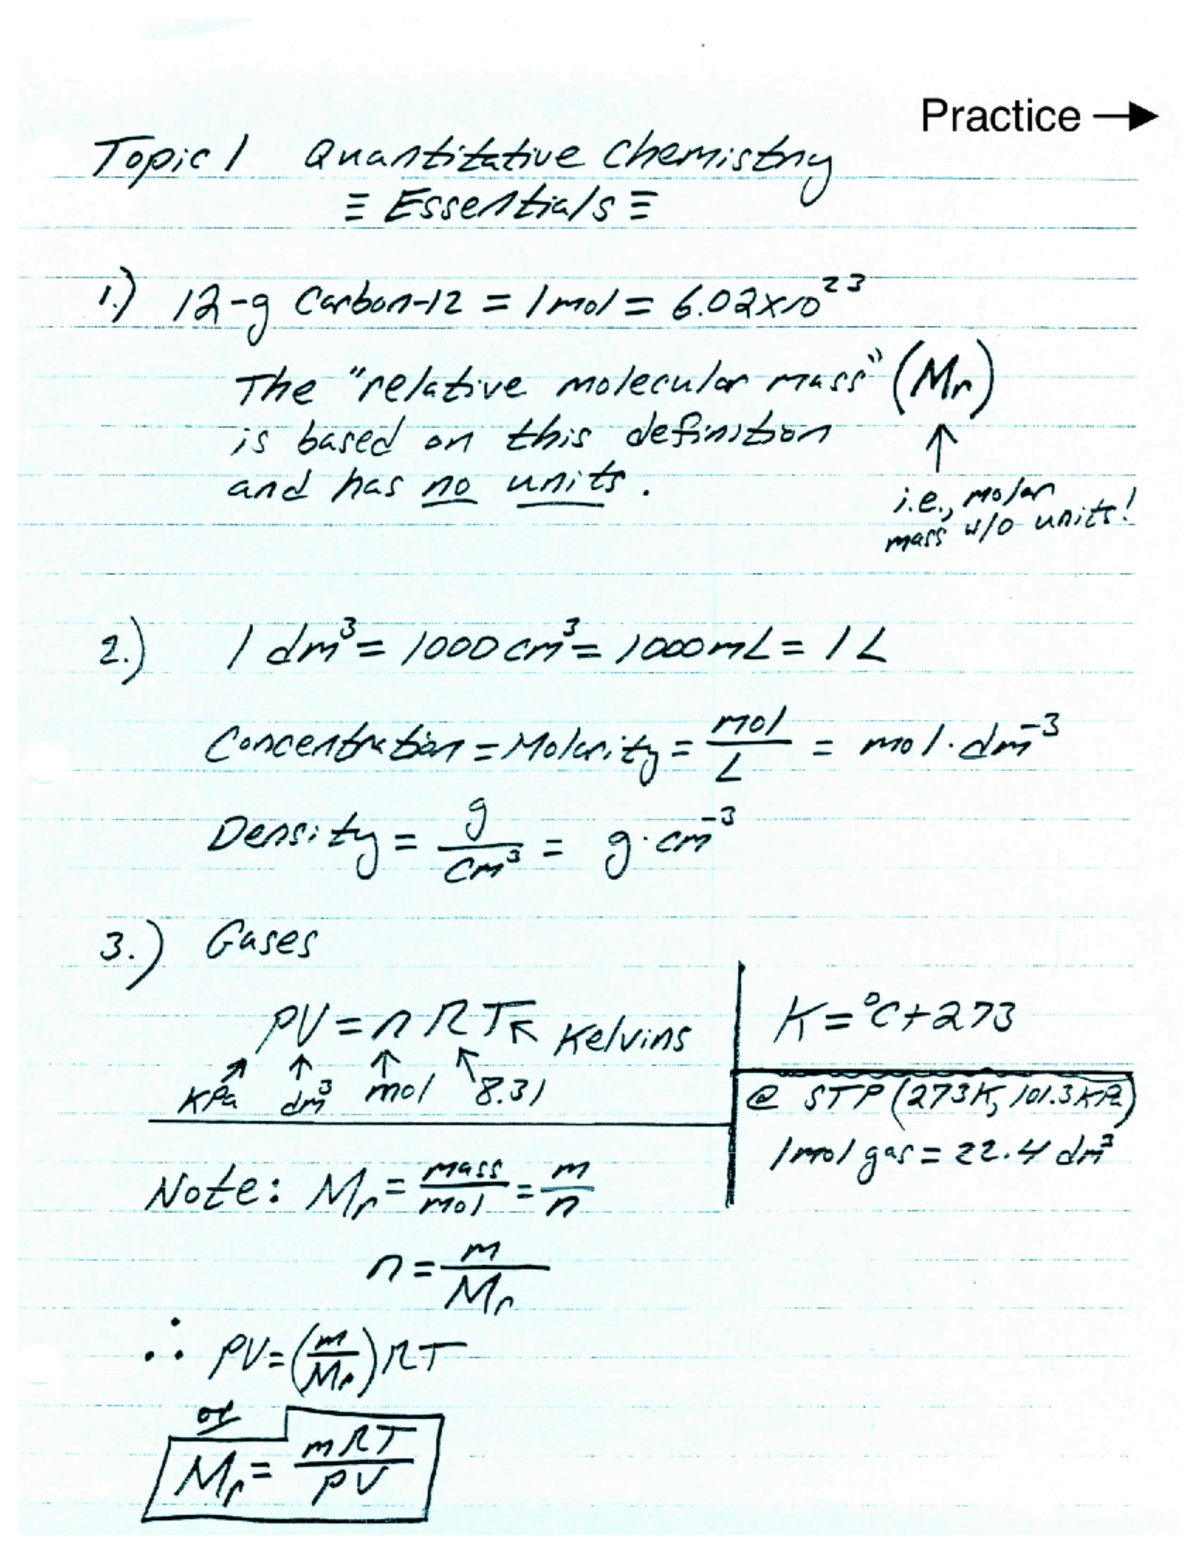 Practice →
Topic 1 Quantitative Chemistry
≡ Essentials ≡
1.) 12-g Carbon-12 = 1 mol = 6.02x10²³
The "relative molecular mass" (Mr)
is based on this definition
and has no units.
↑
i.e., molar
mass w/o units!
2.) 1 dm³ = 1000 cm³ = 1000 mL = 1 L
Concentration = Molarity = mol/L = mol·dm⁻³
Density = g/cm³ = g·cm⁻³
3.) Gases
PV = nRT ↖ Kelvins
KPa dm³ mol 8.31
K = °C + 273
@ STP (273K, 101.3 KPa)
1 mol gas = 22.4 dm³
Note: Mr = mass/mol = m/n
n = m/Mr
∴ PV = (m/Mr)RT
or
Mr = mRT/PV